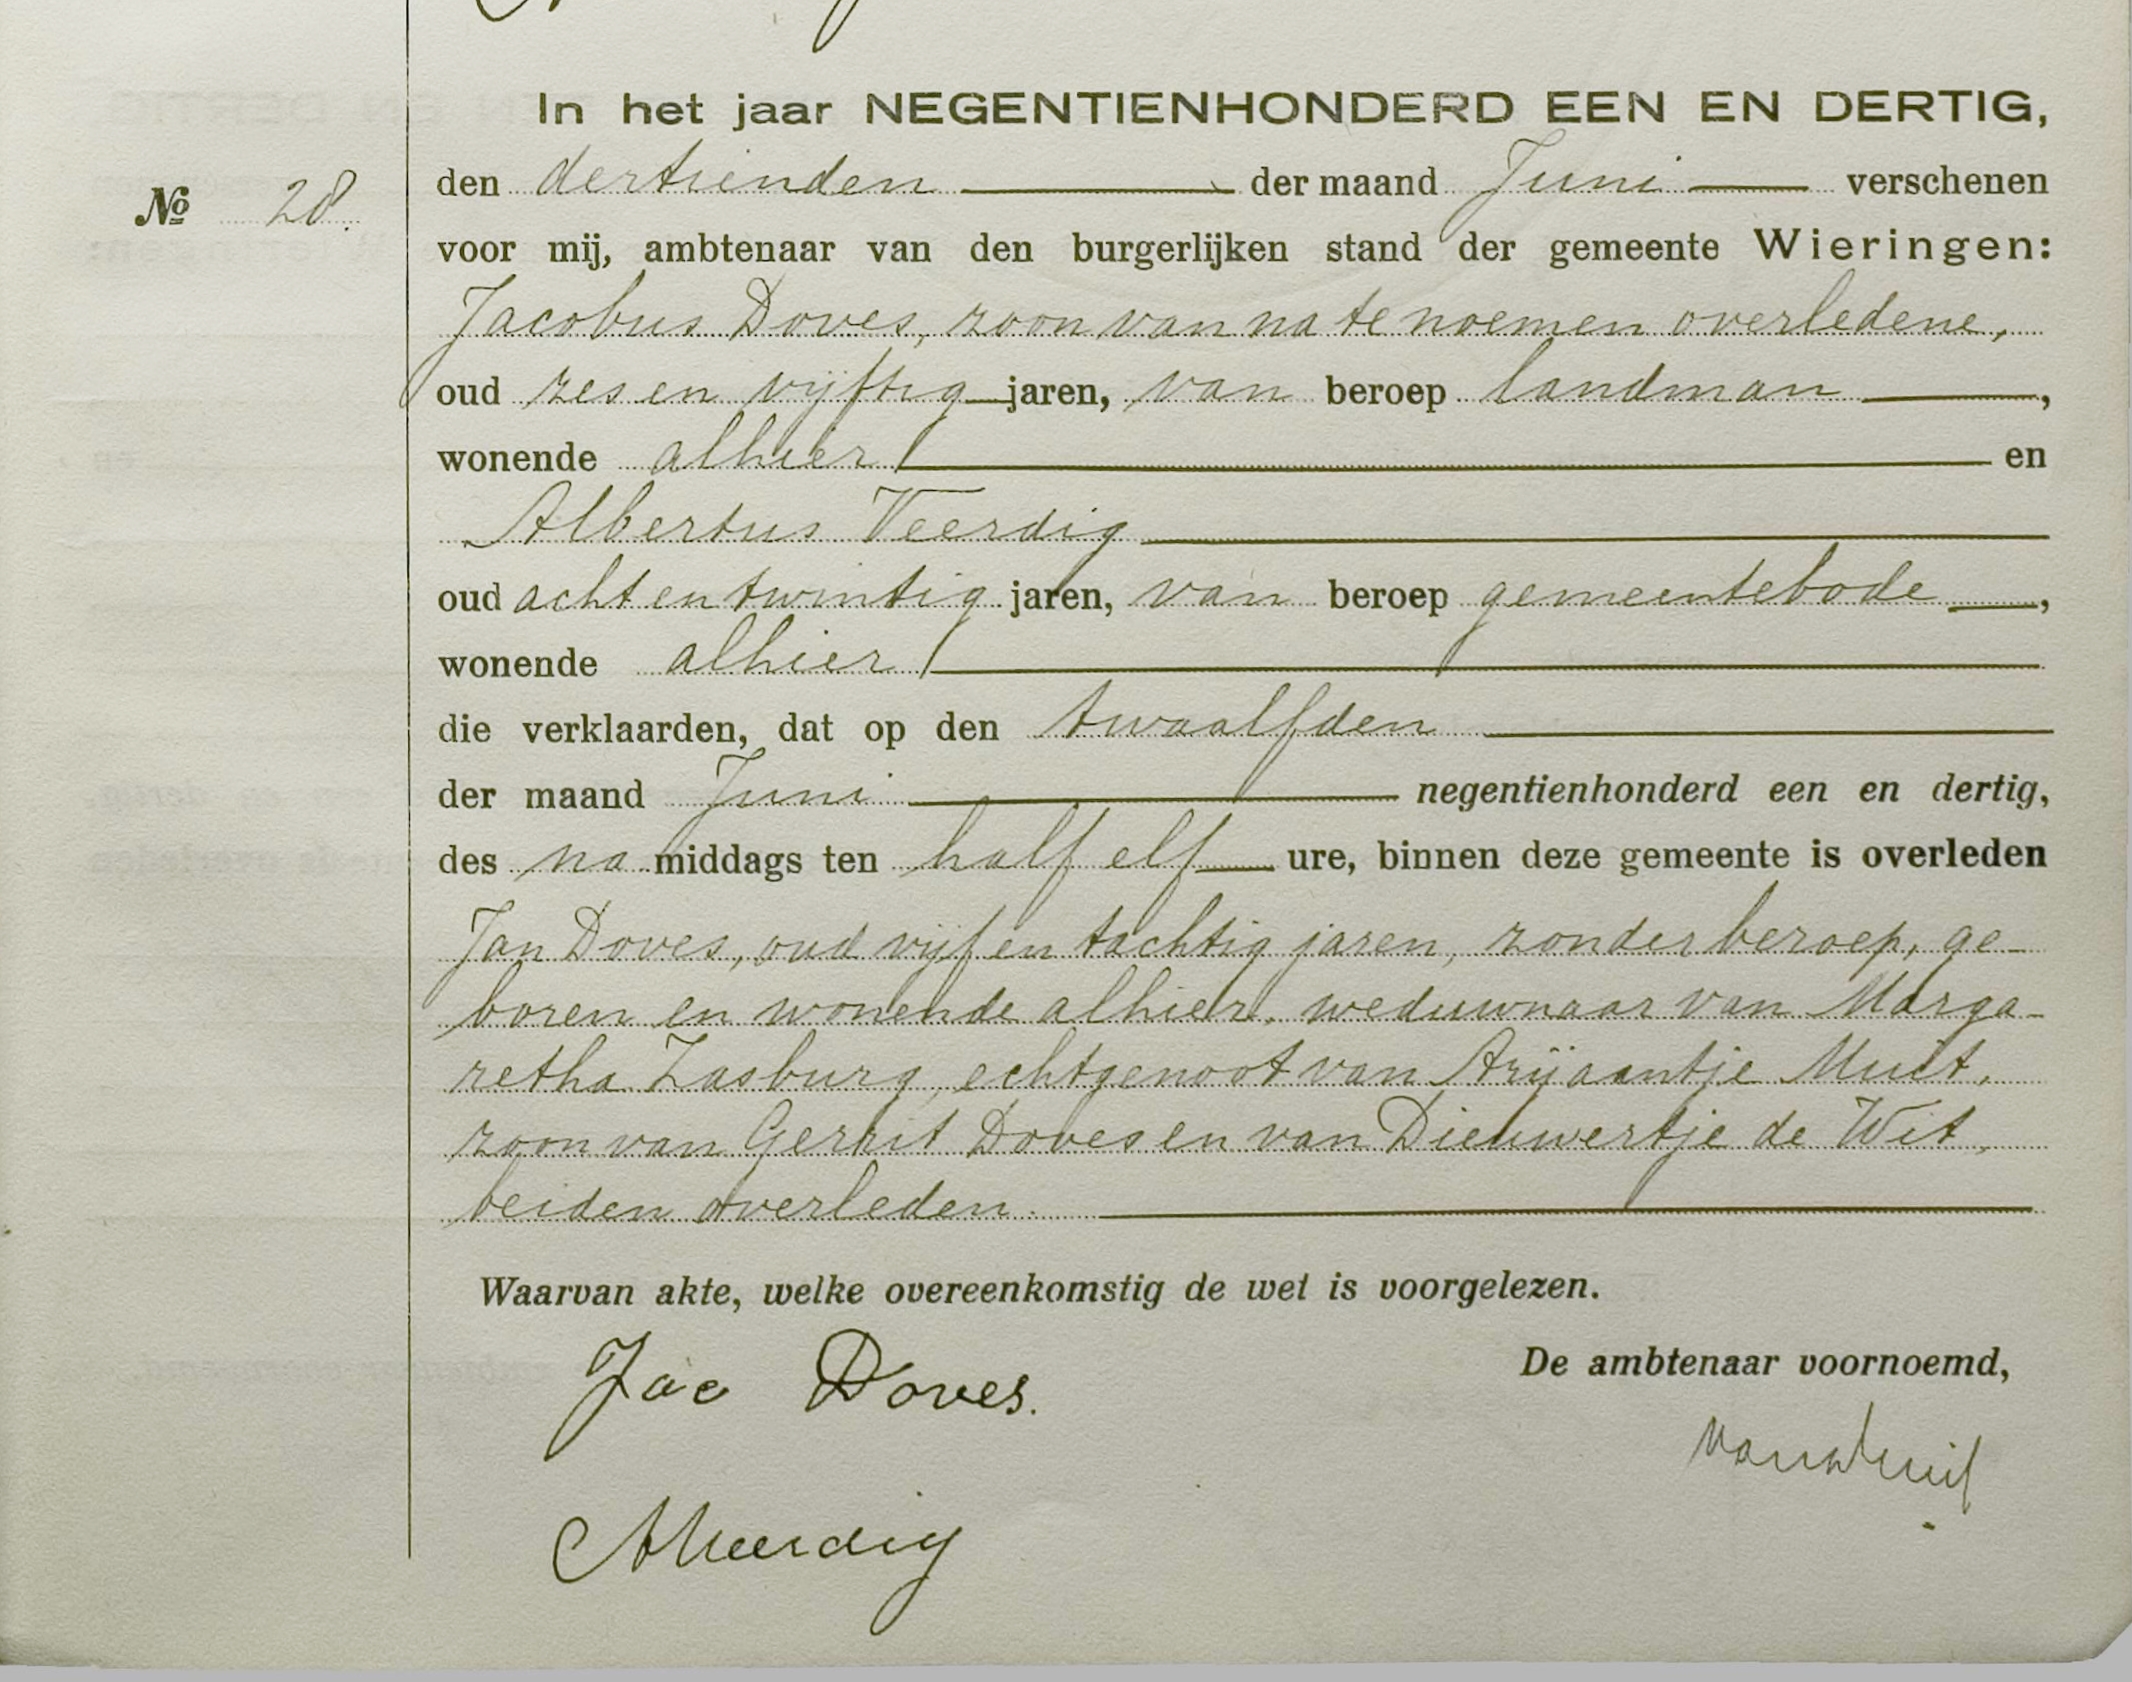 In het jaar NEGENTIENHONDERD EEN EN DERTIG,
den dertienden der maand Juni verschenen
No 28.
voor mij, ambtenaar van den burgerlijken stand der gemeente Wieringen:
Jacobus Doves, zoon van na te noemen overledene,
oud zes en vijftig jaren, van beroep landman,
wonende alhier en
Albertus Veerdig
oud acht en twintig jaren, van beroep gemeentebode,
wonende alhier
die verklaarden, dat op den twaalfden
der maand Juni negentienhonderd een en dertig,
des na middags ten half elf ure, binnen deze gemeente is overleden
Jan Doves, oud vijf en tachtig jaren, zonder beroep, ge-
boren en wonende alhier, weduwnaar van Marga-
retha Lasburg, echtgenoot van Arijaantje Muit,
zoon van Gerrit Doves en van Dieuwertje de Wit,
beiden overleden.
Waarvan akte, welke overeenkomstig de wet is voorgelezen.
Jac Doves.
De ambtenaar voornoemd,
AVeerdig